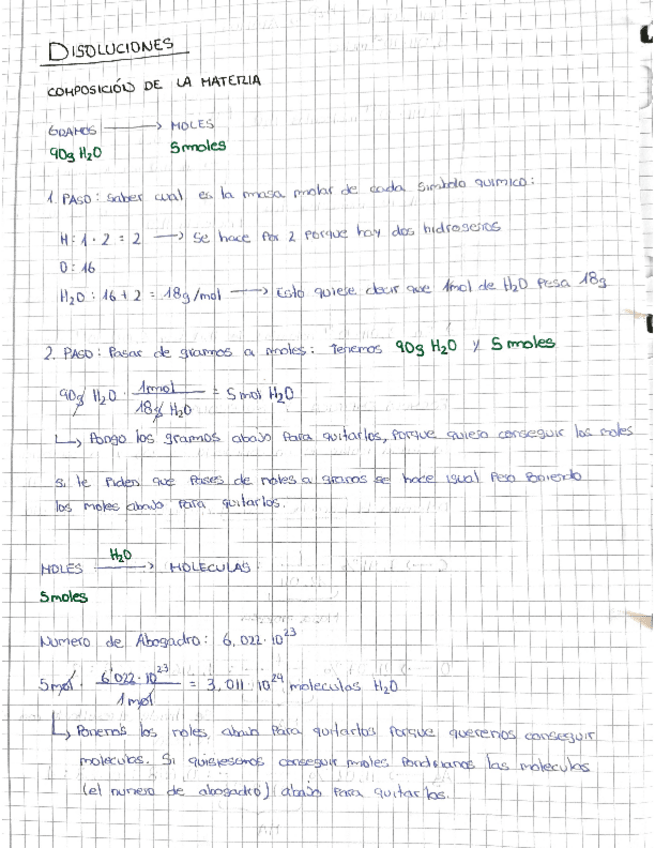 DISOLUCIONES
COMPOSICIÓN DE LA MATERIA
GRAMOS → MOLES
90g H₂O 5 moles
1. PASO: saber cual es la masa molar de cada simbolo quimico:
H: 1 · 2 = 2 → Se hace por 2 porque hay dos hidrogenos
O: 16
H₂O: 16 + 2 = 18g/mol → Esto quiere decir que 1mol de H₂O pesa 18g
2. PASO: Pasar de gramos a moles: Tenemos 90g H₂O y 5 moles
90g H₂O · 1mol / 18g H₂O = 5 mol H₂O
↳ Pongo los gramos abajo para quitarlos, porque quiero conseguir los moles
si te piden que pases de moles a gramos se hace igual pero poniendo
los moles abajo para quitarlos.
MOLES H₂O → MOLECULAS
5 moles
Numero de Abogadro: 6,022·10²³
5mol · 6'022·10²³ / 1 mol = 3,011·10²⁴ moleculas H₂O
↳ Ponemos los moles abajo para quitarlos porque queremos conseguir
moleculas. Si quisiesemos conseguir moles pondriamos las moleculas
(el numero de abogadro) abajo para quitarlos.